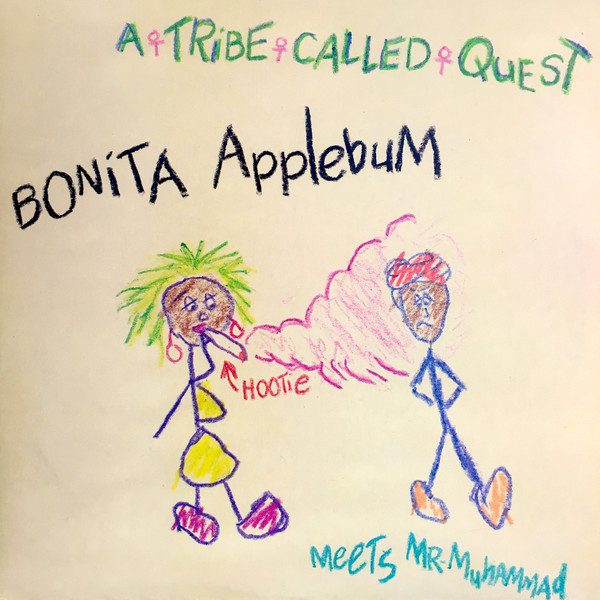 A TRiBE CALLED QUEST
BONiTA ApplebuM
HOOTie
MeeTs MR. MuHAMMAd